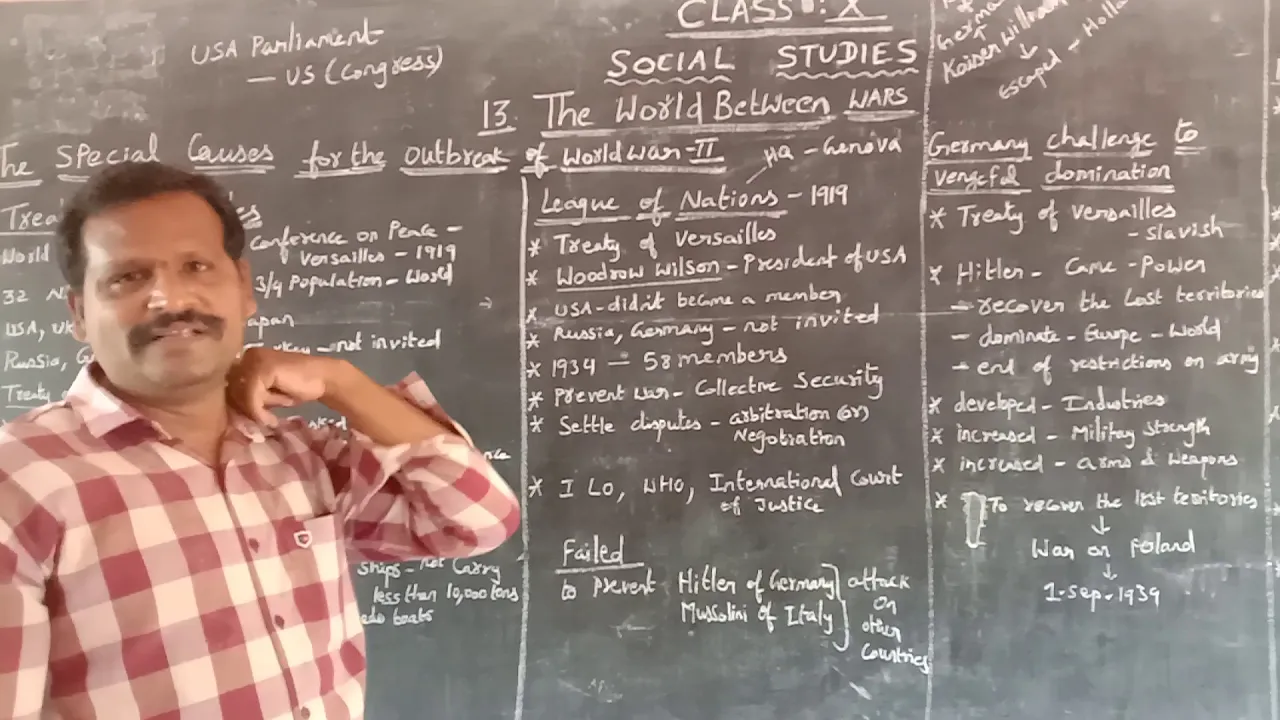 USA Parliament
— US (Congress)
CLASS : X
SOCIAL STUDIES
13. The World Between WARS
The Special Causes for the Outbreak of World War-II
Conference on Peace -
Versailles - 1919
World
3/4 Population - World
32
USA, UK
Japan
Russia,
not invited
Treaty
ships - not Carry
less than 10,000 tons
boats
HQ - Genova
League of Nations - 1919
* Treaty of Versailles
* Woodrow Wilson - President of USA
* USA - didn't became a member
* Russia, Germany - not invited
* 1934 — 58 members
* Prevent War - Collective Security
* Settle disputes - arbitration (or)
Negotration
* I LO, WHO, International Court
of Justice
Failed
to Prevent Hitler of Germany
Mussolini of Italy
attack
on
other
Countries
Kaiser William
↓
escaped - Holla
Germany challenge to
vengeful domination
* Treaty of Versailles
- Slavish
* Hitler - Came - Power
- recover the Lost territories
- dominate - Europe - World
- end of restrictions on army
* developed - Industries
* increased - Militay Strength
* increased - arms & weapons
* To recover the lost territories
↓
War on Poland
↓
1-Sep-1939